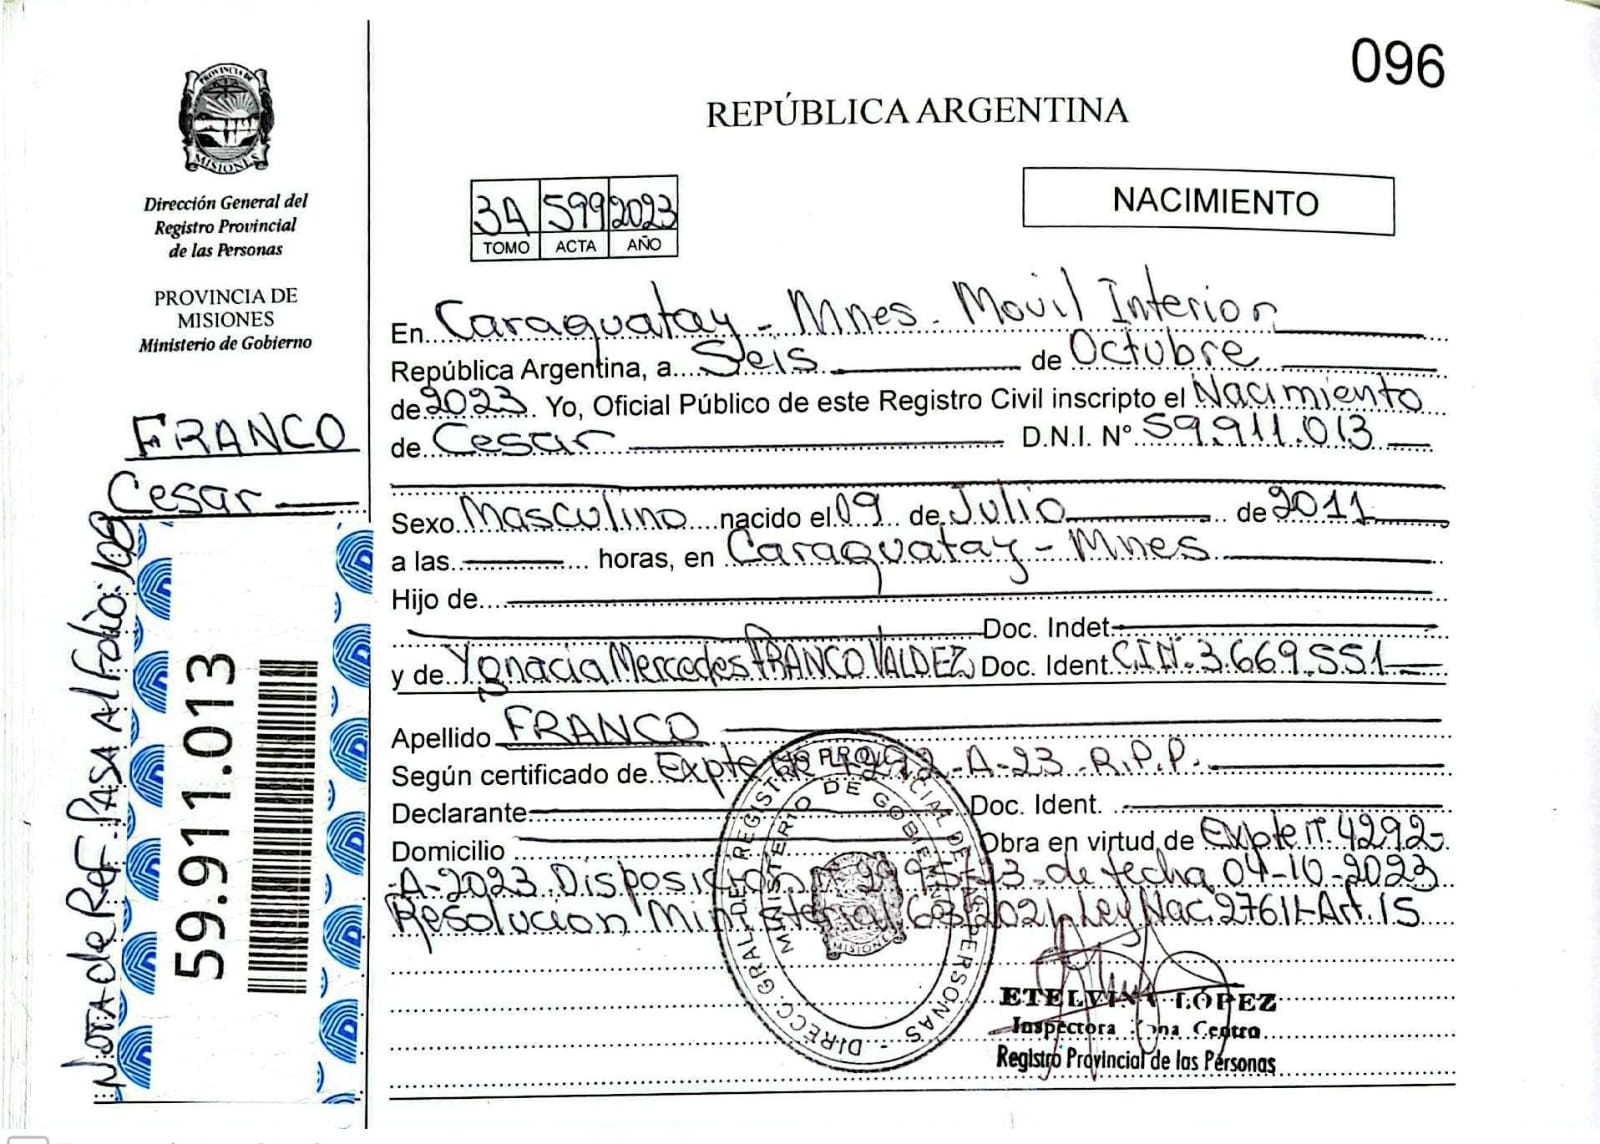 096
PROVINCIA DE
MISIONES
Dirección General del
Registro Provincial
de las Personas
PROVINCIA DE
MISIONES
Ministerio de Gobierno
FRANCO
Cesar
Nota de Ref. PASA Al Folio: 109
59.911.013
REPÚBLICA ARGENTINA
NACIMIENTO
3A 599 2023
TOMO ACTA AÑO
En Caraguatay - Mnes - Movil Interior
República Argentina, a Seis de Octubre
de 2023. Yo, Oficial Público de este Registro Civil inscripto el Nacimiento
de Cesar D.N.I. N° 59.911.013
Sexo Masculino nacido el 09 de Julio de 2011
a las horas, en Caraguatay - Mnes
Hijo de
Doc. Indet
y de Ygnacia Mercedes FRANCO VALDEZ Doc. Ident. C.I.N. 3.669.551
Apellido FRANCO
Según certificado de Expte N° 4292-A-23 R.P.P.
Declarante Doc. Ident.
Domicilio Obra en virtud de Expte n° 4292-
A-2023 Disposición de fecha 04-10-2023
Resolución Ministerial Ley Nac. 27611-Art. 15
DIRECC. GRAL. DEL REGISTRO PROVINCIAL DE LAS PERSONAS
MINISTERIO DE GOBIERNO
MISIONES
ETELVINA LÓPEZ
Inspectora Zona Centro
Registro Provincial de las Personas